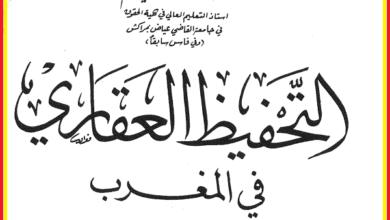 استاذ التعليم العالي في كلية الحقوق
في جامعة القاضي عياض بمراكش
(وفي فاس سابقاً)
التحفيظ العقاري
في المغرب